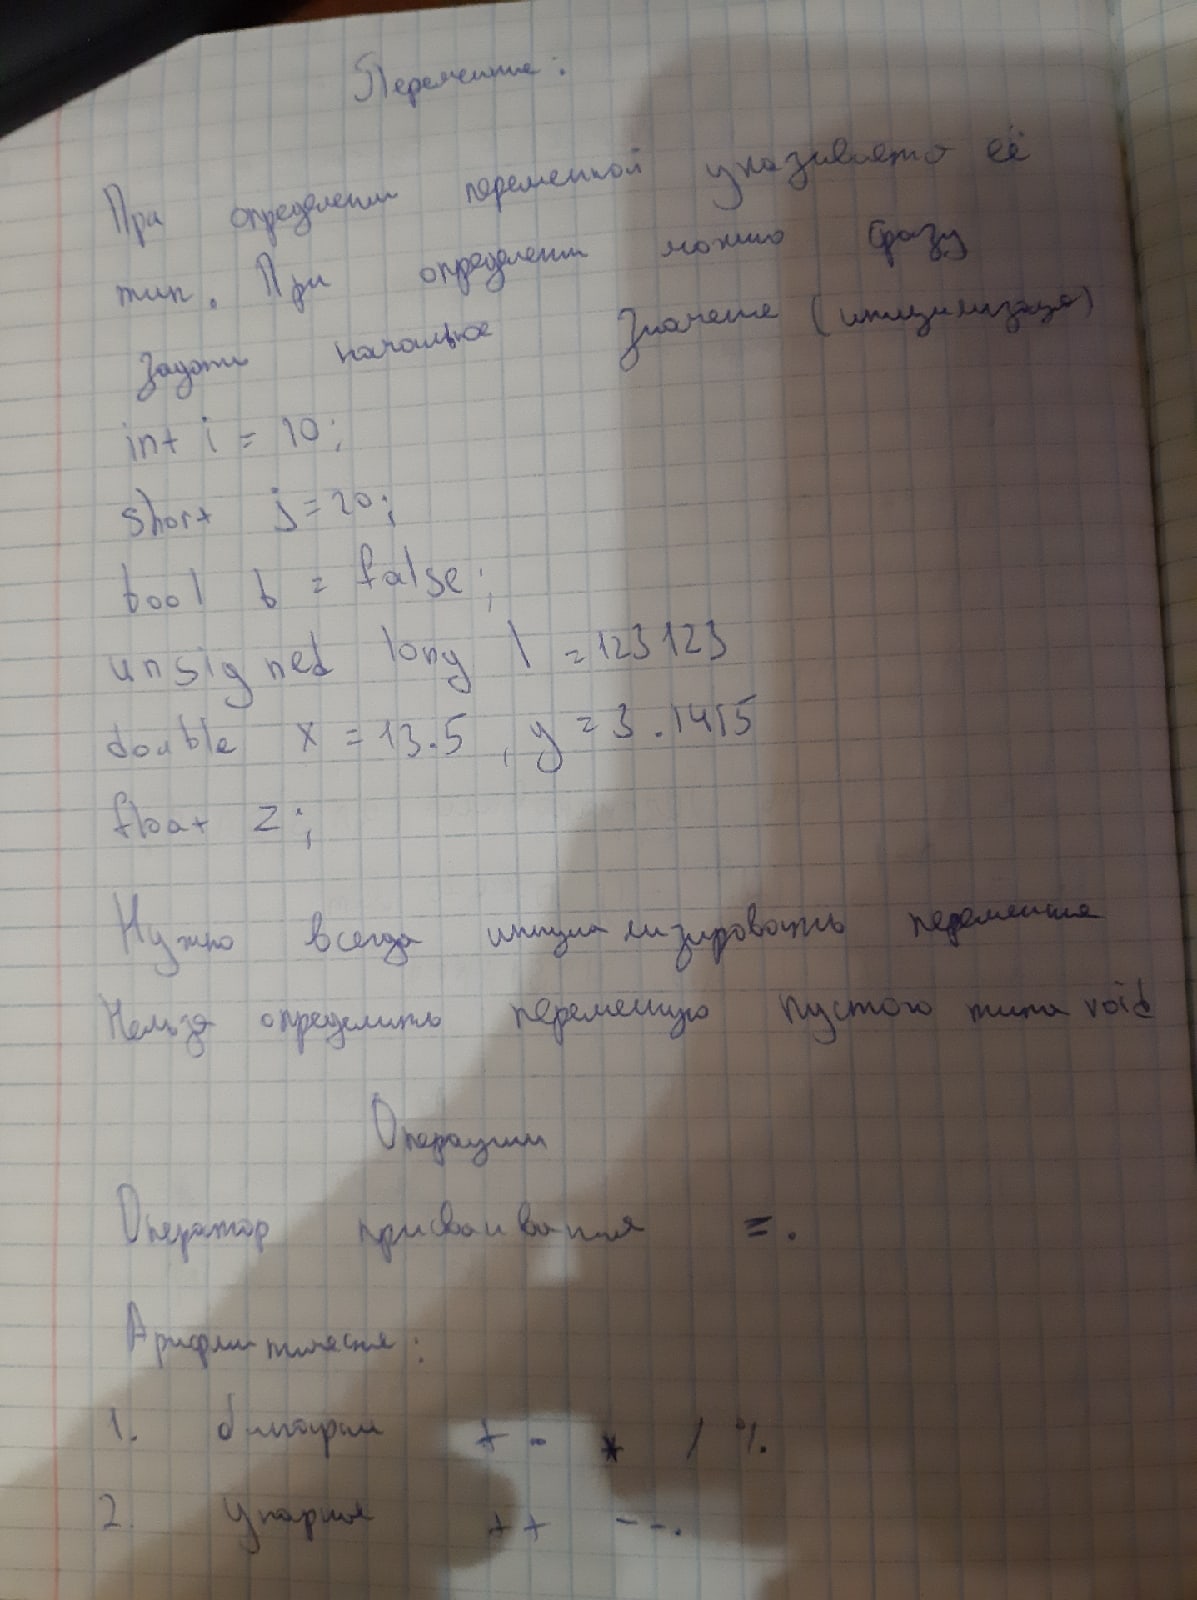 Переменные:
При определении переменной указывается её
тип. При определении можно сразу
задать начальное значение (инициализация)
int i = 10;
short j = 20;
bool b = false;
unsigned long l = 123123
double x = 13.5, y = 3.1415
float z;
Нужно всегда инициализировать переменные
Нельзя определить переменную пустого типа void
Операции
Оператор присваивания =.
Арифметические:
1. бинарные + - * / %.
2. Унарные ++ --.